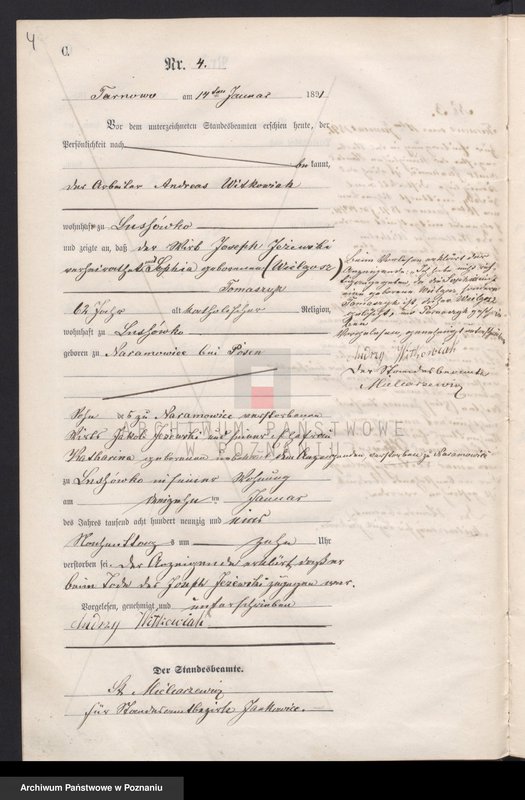 4
C.
Nr. 4.
Tarnowo am 14ten Januar 1891
Vor dem unterzeichneten Standesbeamten erschien heute, der
Persönlichkeit nach
bekannt,
der Arbeiter Andreas Witkowiak
wohnhaft zu Lussówko
und zeigte an, daß der Wirt Joseph Jezewski
verheirathet mit Sophia geborenen (Wielgosz)
Tomaszyk
62 Jahr alt katholischer Religion,
wohnhaft zu Lussówko
geboren zu Naramowice bei Posen
Sohn des zu Naramowice verstorbenen
Wirts Jakob Jezewski und seiner Ehefrau
Katharina geborenen unbekannt dem Anzeigenden, verstorben zu Naramowice
zu Lussówko in seiner Wohnung
am dreizehn ten Januar
des Jahres tausend acht hundert neunzig und eins
Nachmittags um zehn Uhr
verstorben sei. Der Anzeigende erklärt, daß er
beim Tode des Joseph Jezewski zugegen war.
Vorgelesen, genehmigt und unterschrieben
Andrzy Witkowiak
Der Standesbeamte.
St. Mielcarzewicz
für Standesamtsbezirk Jankowice.
Beim Vorlesen erklärt der
Anzeigende,
geborene Wielgosz, sondern
Tomaszyk ist, daher Wielgosz
gelöscht, und Tomaszyk geschrieben
Vorgelesen, genehmigt unterschrieben
Andrzy Witkowiak
Der Standesbeamte
Mielcarzewicz
ARCHIWUM PAŃSTWOWE
W POZNANIU
Archiwum Państwowe w Poznaniu